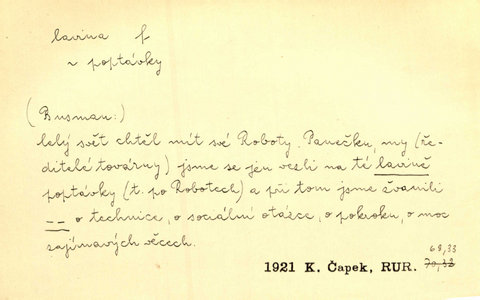 lavina f
~ poptávky
(Busman:)
Celý svět chtěl mít své Roboty. Panečku, my (ře-
ditelé továrny) jsme se jen vezli na té lavině
poptávky (t. po Robotech) a při tom jsme žvanili
-- o technice, o sociální otázce, o pokroku, o moc
zajímavých věcech.
68,33
1921 K. Čapek, RUR. 70,32